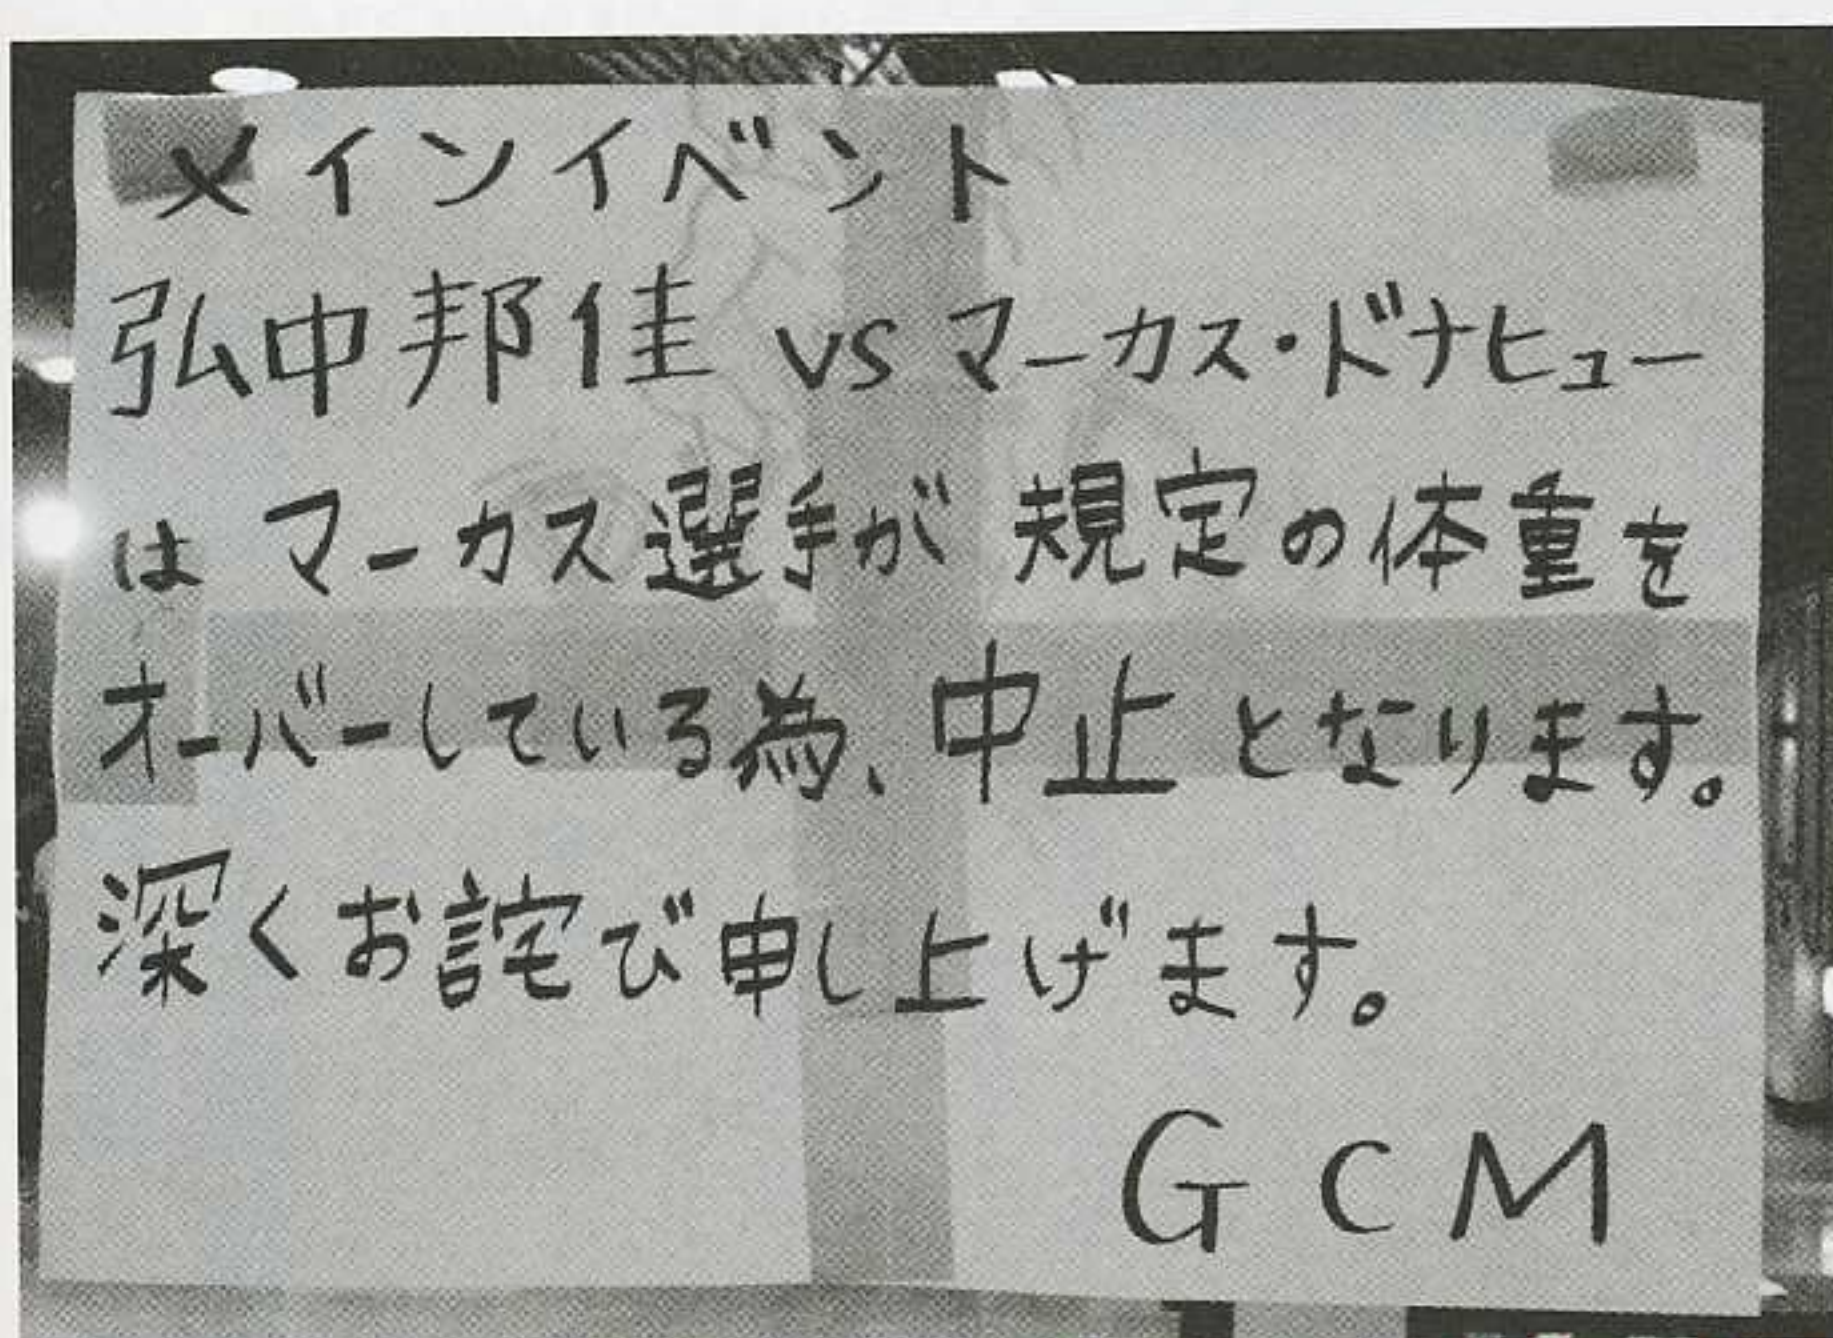 メインイベント
弘中邦佳 vs マーカス・ドナヒュー
は マーカス選手が 規定の体重を
オーバーしている為、中止となります。
深くお詫び申し上げます。
GCM